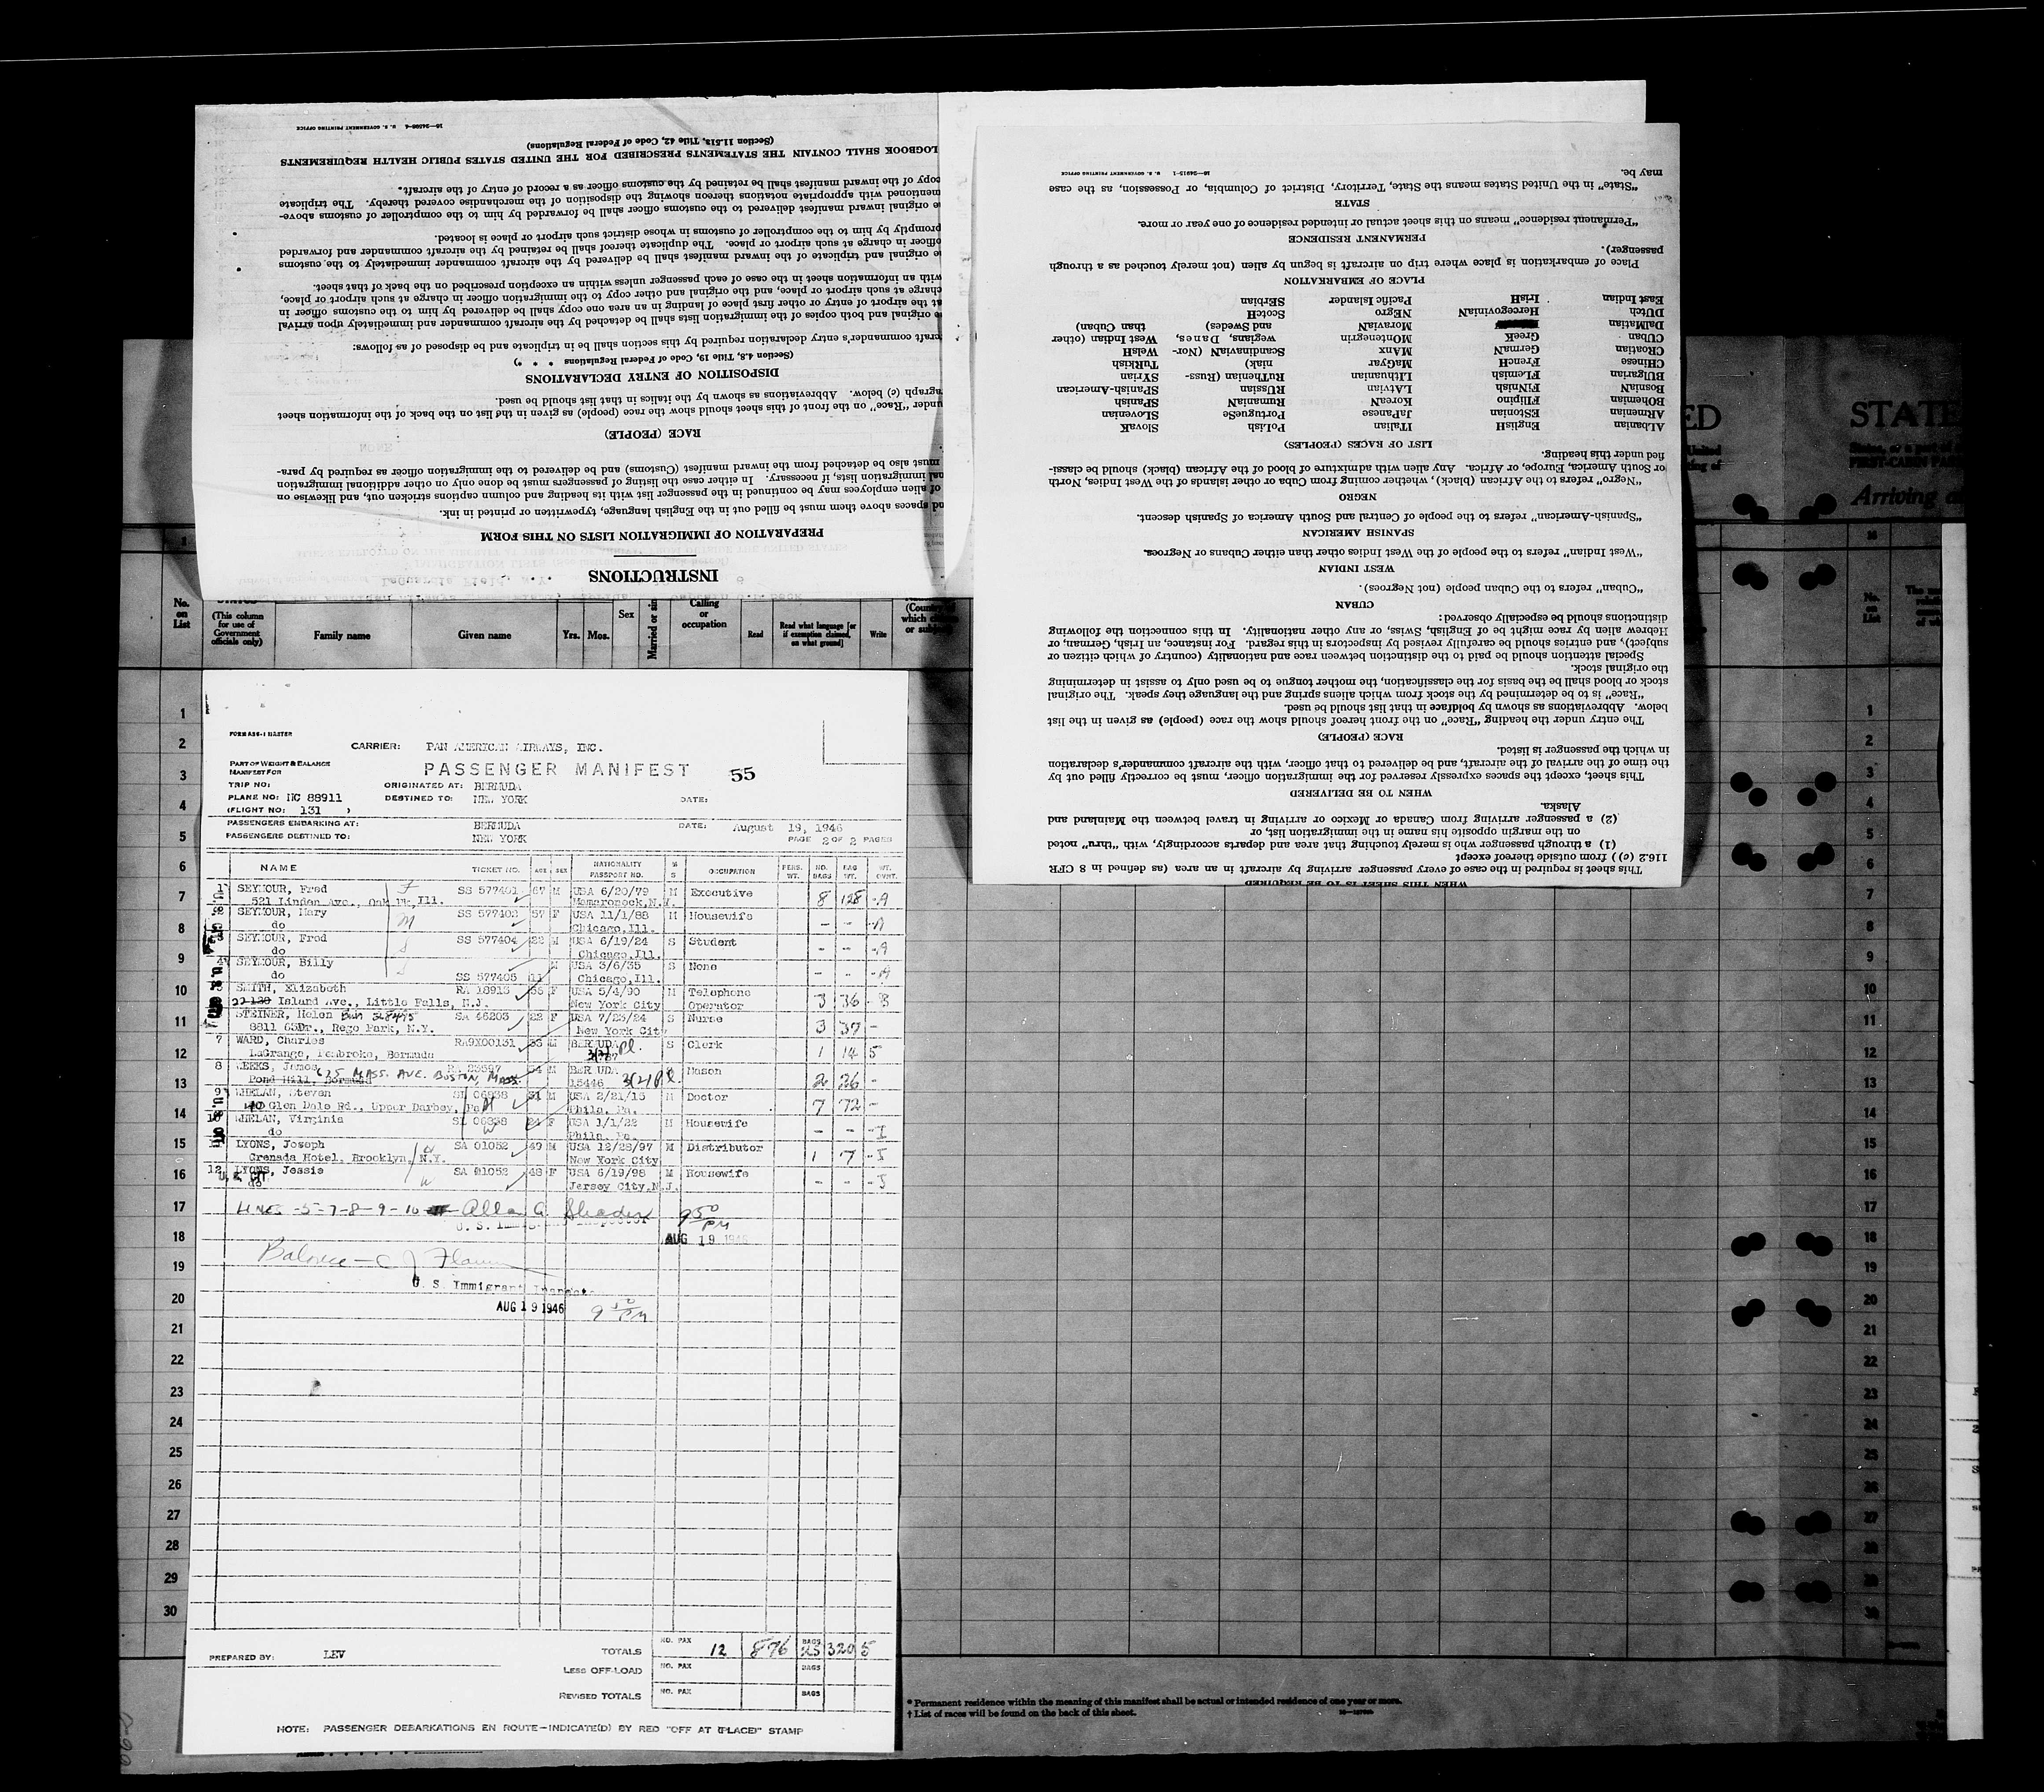 INSTRUCTIONS
PREPARATION OF IMMIGRATION LISTS ON THIS FORM
nd spaces above them must be filled out in the English language, typewritten or printed in ink.
of alien employees may be continued in the passenger list with its heading and column captions stricken out, and likewise on
al immigration lists, if necessary. In either case the listing of passengers must be done only on other additional immigration
must also be detached from the inward manifest (Customs) and be delivered to the immigration officer as required by para-
RACE (PEOPLE)
under "Race" on the front of this sheet should show the race (people) as given in the list on the back of the information sheet
agraph (c) below. Abbreviations as shown by the italics in that list should be used.
DISPOSITION OF ENTRY DECLARATIONS
(Section 4.8, Title 19, Code of Federal Regulations * * *)
craft commander's entry declaration required by this section shall be in triplicate and be disposed of as follows:
e original and both copies of the immigration lists shall be detached by the aircraft commander and immediately upon arrival
at the airport of entry or other first place of landing in an area one copy shall be delivered by him to the customs officer in
charge at such airport or place, and the original and other copy to the immigration officer in charge at such airport or place,
with an information sheet in the case of each passenger unless within an exception prescribed on the back of that sheet.
e original and triplicate of the inward manifest shall be delivered by the aircraft commander immediately to the customs
officer in charge at such airport or place. The duplicate thereof shall be retained by the aircraft commander and forwarded
promptly by him to the comptroller of customs in whose district such airport or place is located.
e original inward manifest delivered to the customs officer shall be forwarded by him to the comptroller of customs above-
mentioned with appropriate notations thereon showing the disposition of the merchandise covered thereby. The triplicate
copy of the inward manifest shall be retained by the customs officer as a record of entry of the aircraft.
LOGBOOK SHALL CONTAIN THE STATEMENTS PRESCRIBED FOR THE UNITED STATES PUBLIC HEALTH REQUIREMENTS
(Section 11.513, Title 42, Code of Federal Regulations)
U. S. GOVERNMENT PRINTING OFFICE
WHEN THIS SHEET IS TO BE REQUIRED
This sheet is required in the case of every passenger arriving by aircraft in an area (as defined in 8 CFR
116.2 (c)) from outside thereof except
(1) a through passenger who is merely touching that area and departs accordingly, with "thru" noted
on the margin opposite his name in the immigration list, or
(2) a passenger arriving from Canada or Mexico or arriving in travel between the Mainland and
Alaska.
WHEN TO BE DELIVERED
This sheet, except the spaces expressly reserved for the immigration officer, must be correctly filled out by
the time of the arrival of the aircraft, and be delivered to that officer, with the aircraft commander's declaration
in which the passenger is listed.
RACE (PEOPLE)
The entry under the heading "Race" on the front hereof should show the race (people) as given in the list
below. Abbreviations as shown by boldface in that list should be used.
"Race" is to be determined by the stock from which aliens spring and the language they speak. The original
stock or blood shall be the basis for the classification, the mother tongue to be used only to assist in determining
the original stock.
Special attention should be paid to the distinction between race and nationality (country of which citizen or
subject), and entries should be carefully revised by inspectors in this regard. For instance, an Irish, German, or
Hebrew alien by race might be of English, Swiss, or any other nationality. In this connection the following
distinctions should be especially observed:
CUBAN
"Cuban" refers to the Cuban people (not Negroes).
WEST INDIAN
"West Indian" refers to the people of the West Indies other than either Cubans or Negroes.
SPANISH AMERICAN
"Spanish-American" refers to the people of Central and South America of Spanish descent.
NEGRO
"Negro" refers to the African (black), whether coming from Cuba or other islands of the West Indies, North
or South America, Europe, or Africa. Any alien with admixture of blood of the African (black) should be classi-
fied under this heading.
LIST OF RACES (PEOPLES)
ALbanian EnglisH ITalian PoLish SlovaK
ARmenian EStonian JaPanese PortuguеSe SlOvenian
BOhemian FIlipino KoreaN RumaniaN SPanish
BosniaN FiNnish LAtvian RUssian SPanish-American
BUlgarian FLemish LIthuanian RuThenian (Russ- SYrian
CHinese FrencH MaGyar niak) TuRkish
CRoatian GermaN MAnx Scandinavian (Nor- WelsH
CUban GreeK MOntenegrin wegians, Danes, West Indian (other
DalMatian MoraviaN and Swedes) than Cuban)
DUtch HercegovinianN NEgro ScotcH
East Indian IrisH Pacific Islander SErbian
PLACE OF EMBARKATION
Place of embarkation is place where trip on aircraft is begun by alien (not merely touched as a through
passenger).
PERMANENT RESIDENCE
"Permanent residence" means on this sheet actual or intended residence of one year or more.
STATE
"State" in the United States means the State, Territory, District of Columbia, or Possession, as the case
may be.
U. S. GOVERNMENT PRINTING OFFICE
ED
STATE
Arriving a
No. on List
(This column for use of Government officials only)
Family name
Given name
Yrs. Mos.
Sex
Married or sin
Calling or occupation
Read
Read what language [or if exemption claimed, on what ground]
Write
FORM A36-1 MASTER
CARRIER: PAN AMERICAN AIRWAYS, INC.
PASSENGER MANIFEST 55
PART OF WEIGHT & BALANCE
MANIFEST FOR
TRIP NO: ORIGINATED AT: BERMUDA
PLANE NO: NC 88911 DESTINED TO: NEW YORK DATE:
(FLIGHT NO: 131 )
PASSENGERS EMBARKING AT: BERMUDA DATE: August 19, 1946
PASSENGERS DESTINED TO: NEW YORK PAGE 2 OF 2 PAGES
NAME TICKET NO. AGE SEX NATIONALITY PASSPORT NO. M S OCCUPATION PERS. WT. NO. BAGS BAG WT. WT. OVWT.
1 SEYMOUR, Fred SS 577401 67 M USA 6/20/79 M Executive 8 128 -A
521 Linden Ave., Oak Pk, Ill. Mamaroneck, N.Y.
2 SEYMOUR, Mary SS 577402 57 F USA 11/1/88 M Housewife - -A
do Chicago, Ill.
3 SEYMOUR, Fred SS 577404 22 M USA 6/19/24 S Student - - -A
do Chicago, Ill.
4 SEYMOUR, Billy M USA 3/6/35 S None - - -A
do SS 577405 11 Chicago, Ill.
5 SMITH, Elizabeth RA 18913 56 F USA 5/4/90 M Telephone 3 36 -8
Island Ave., Little Falls, N.J. New York City Operator
STEINER, Helen SA 46203 22 F USA 7/23/24 S Nurse 3 37 -
8811 63Dr., Rego Park, N.Y. New York City
7 WARD, Charles RA9X00131 33 M BERMUDA S Clerk 1 14 5
LaGrange, Pembroke, Bermuda
8 WEEKS, James 54 M BERMUDA Mason 2 26 -
Pond Hill, Bermuda 625 MASS. AVE. BOSTON, MASS. 15446 3(2) Pl.
9 WHELAN, Steven SL 06838 31 M USA 2/21/15 M Doctor 7 72 -
Glen Dale Rd., Upper Darby, Pa Phila. Pa.
10 WHELAN, Virginia SL 06838 24 F USA 1/1/22 M Housewife - - -I
do Phila. Pa.
LYONS, Joseph SA 01052 49 M USA 12/28/97 M Distributor 1 7 -5
Grenada Hotel, Brooklyn, N.Y. New York City
12 LYONS, Jessie SA 01052 48 F USA 6/19/98 M Housewife - - -5
do Jersey City, N.J.
LINES -5-7-8-9-10 Allan G. Shader 9 50 PM
AUG 19 1946
Balance - C J
U. S. Immigrant Inspector
AUG 19 1946 9 50 PM
TOTALS NO. PAX 12 876 BAGS 25 320 5
PREPARED BY: LEV
LESS OFF-LOAD NO. PAX BAGS
REVISED TOTALS NO. PAX BAGS
NOTE: PASSENGER DEBARKATIONS EN ROUTE-INDICATE(D) BY RED "OFF AT (PLACE)" STAMP
* Permanent residence within the meaning of this manifest shall be actual or intended residence of one year or more.
† List of races will be found on the back of this sheet.